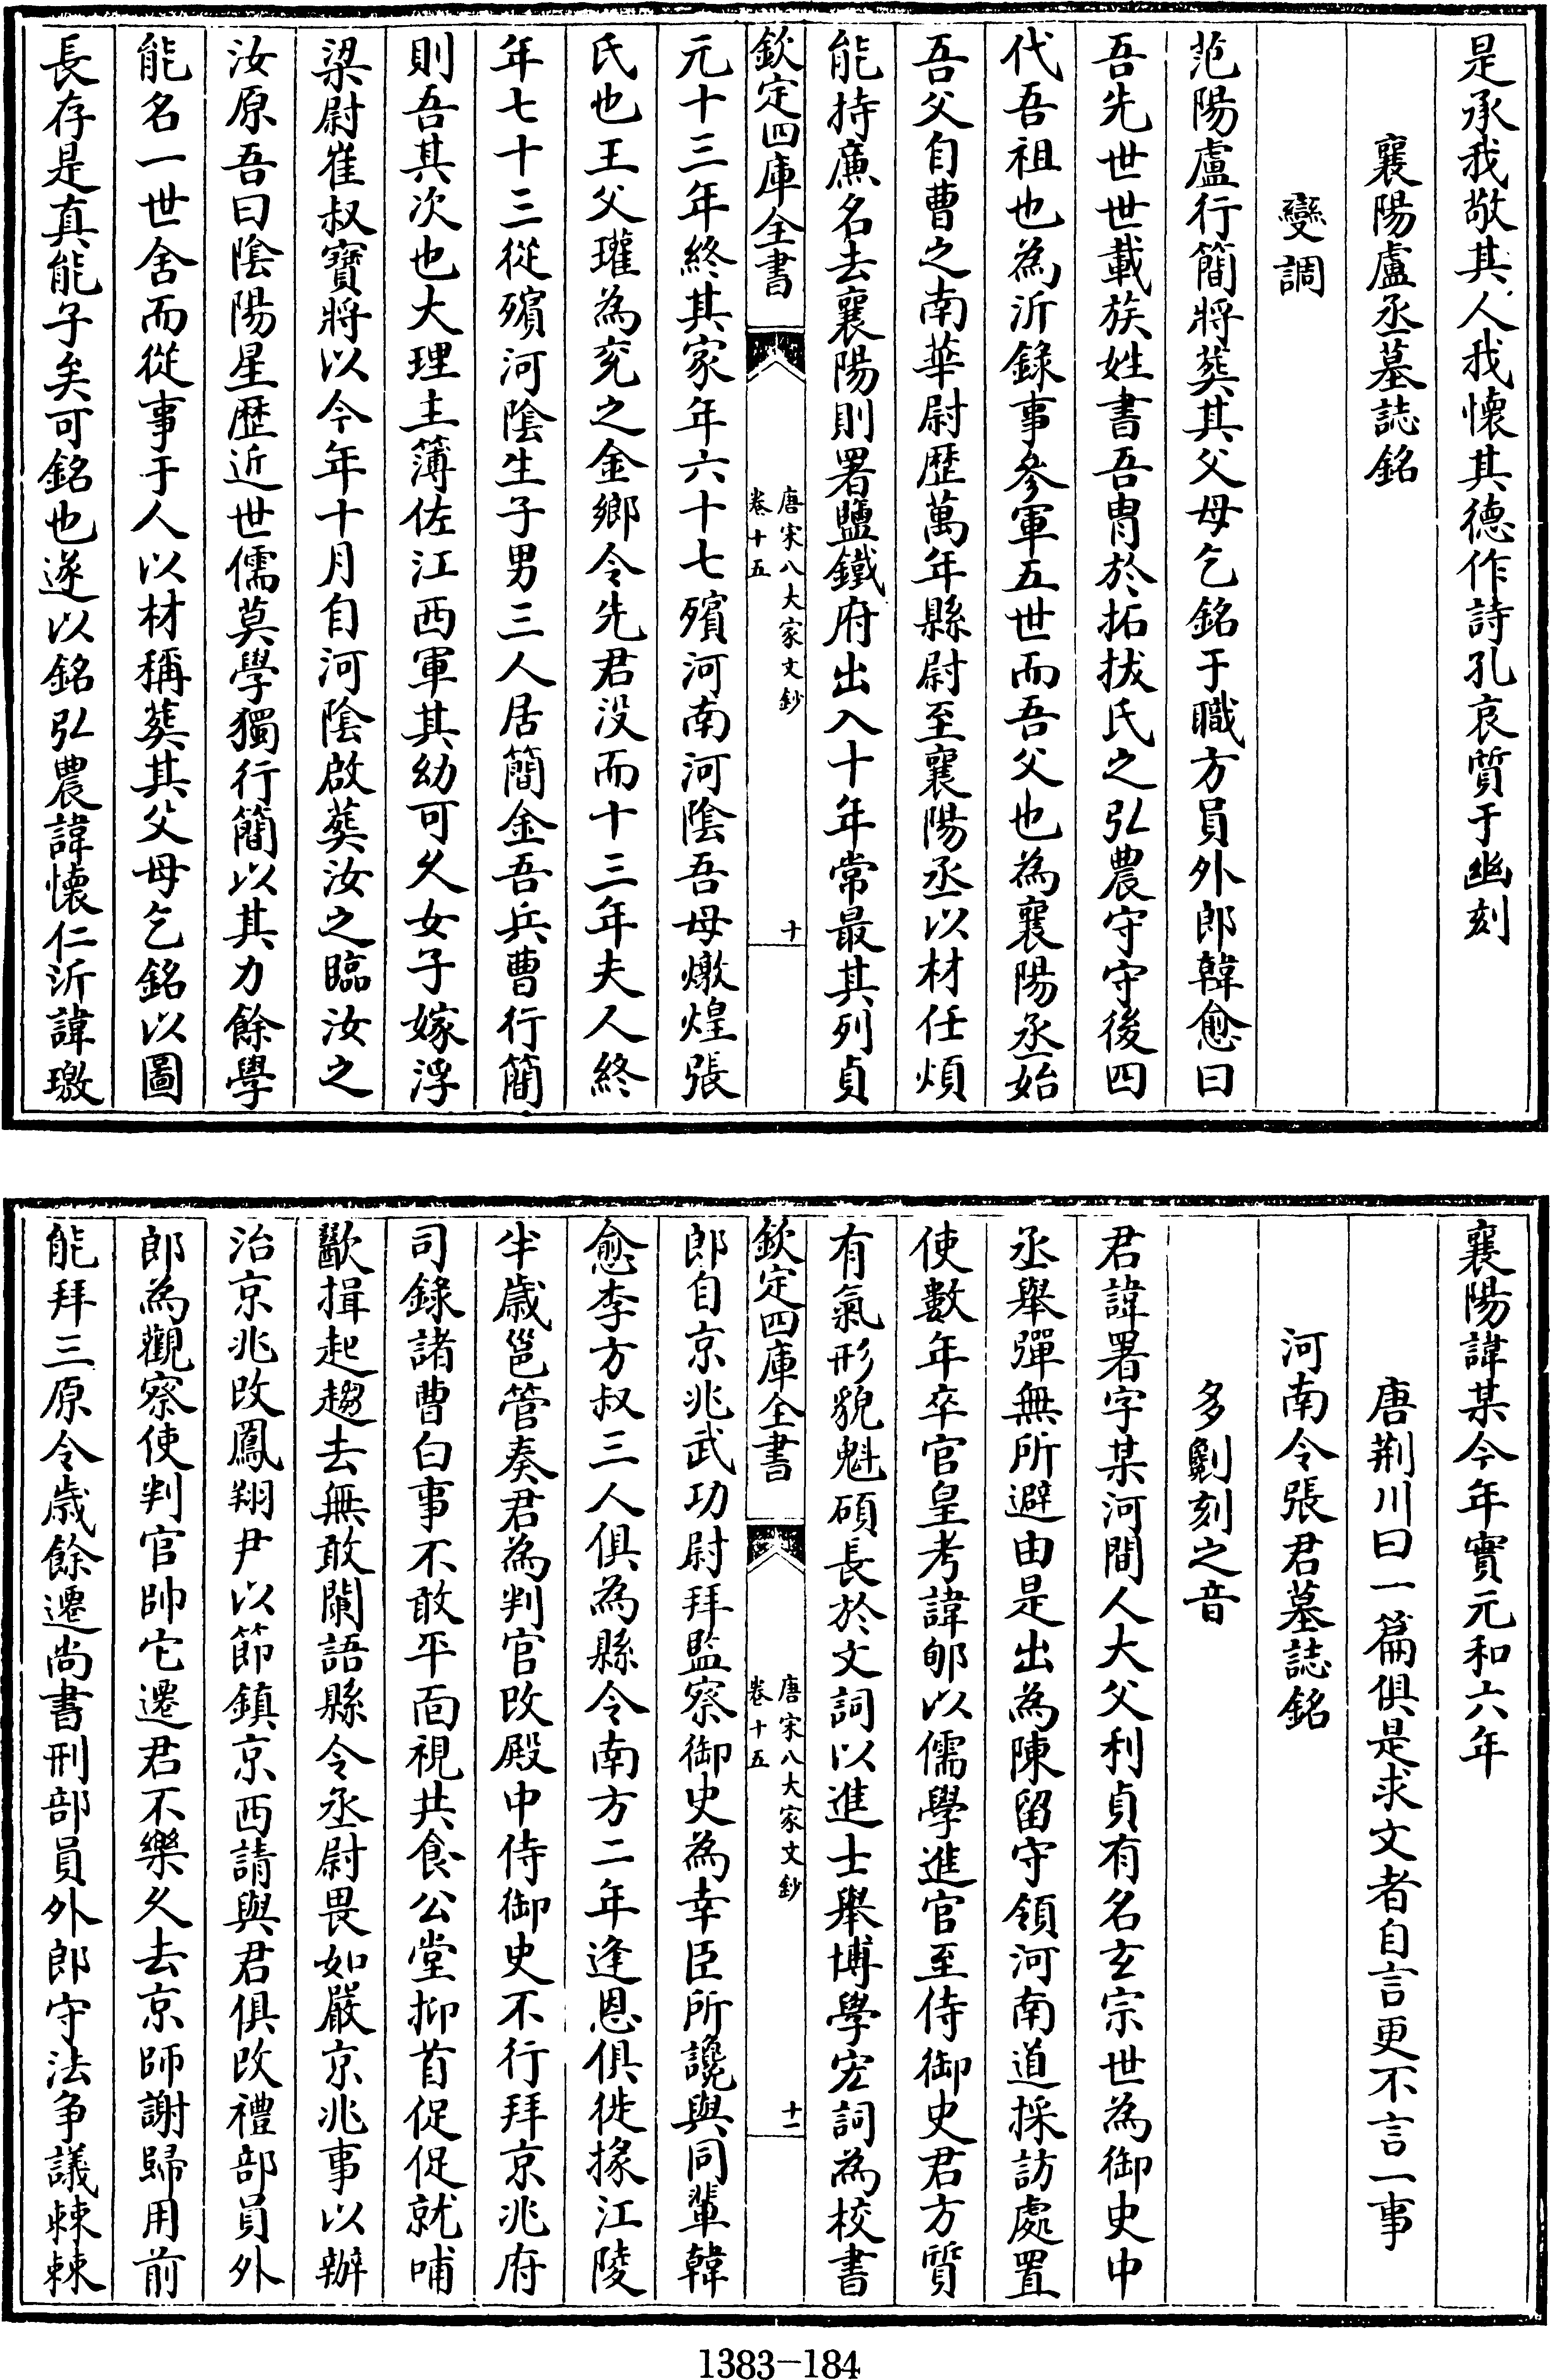 是承我敬其人我懷其德作詩孔哀質于幽刻
襄陽盧丞墓誌銘
變調
范陽盧行簡將葬其父母乞銘于職方員外郎韓愈曰
吾先世世載族姓書吾胄於拓拔氏之弘農守守後四
代吾祖也為沂錄事參軍五世而吾父也為襄陽丞始
吾父自曹之南華尉歴萬年縣尉至襄陽丞以材任煩
能持廉名去襄陽則署鹽鐵府出入十年常最其列貞
欽定四庫全書
唐宋八大家文鈔
卷十五
十
元十三年終其家年六十七殯河南河陰吾母燉煌張
氏也王父瓘為兖之金鄉令先君沒而十三年夫人終
年七十三從殯河陰生子男三人居簡金吾兵曹行簡
則吾其次也大理主簿佐江西軍其幼可久女子嫁浮
梁尉崔叔寶將以今年十月自河陰啟葬汝之臨汝之
汝原吾曰陰陽星歴近世儒莫學獨行簡以其力餘學
能名一世舍而從事于人以材稱葬其父母乞銘以圖
長存是真能子矣可銘也遂以銘弘農諱懷仁沂諱璬
襄陽諱某今年實元和六年
唐荆川曰一篇俱是求文者自言更不言一事
河南令張君墓誌銘
多劖刻之音
君諱署字某河間人大父利貞有名玄宗世為御史中
丞舉彈無所避由是出為陳留守領河南道採訪處置
使數年卒官皇考諱郇以儒學進官至侍御史君方質
有氣形貌魁碩長於文詞以進士舉博學宏詞為校書
欽定四庫全書
唐宋八大家文鈔
卷十五
十一
郎自京兆武功尉拜監察御史為幸臣所讒與同輩韓
愈李方叔三人俱為縣令南方二年逢恩俱徙掾江陵
半歲邕管奏君為判官改殿中侍御史不行拜京兆府
司錄諸曹白事不敢平面視共食公堂抑首促促就哺
歠揖起趨去無敢闌語縣令丞尉畏如嚴京兆事以辦
治京兆改鳳翔尹以節鎮京西請與君俱改禮部員外
郎為觀察使判官帥它遷君不樂久去京師謝歸用前
能拜三原令歲餘遷尚書刑部員外郎守法争議棘棘
1383-184